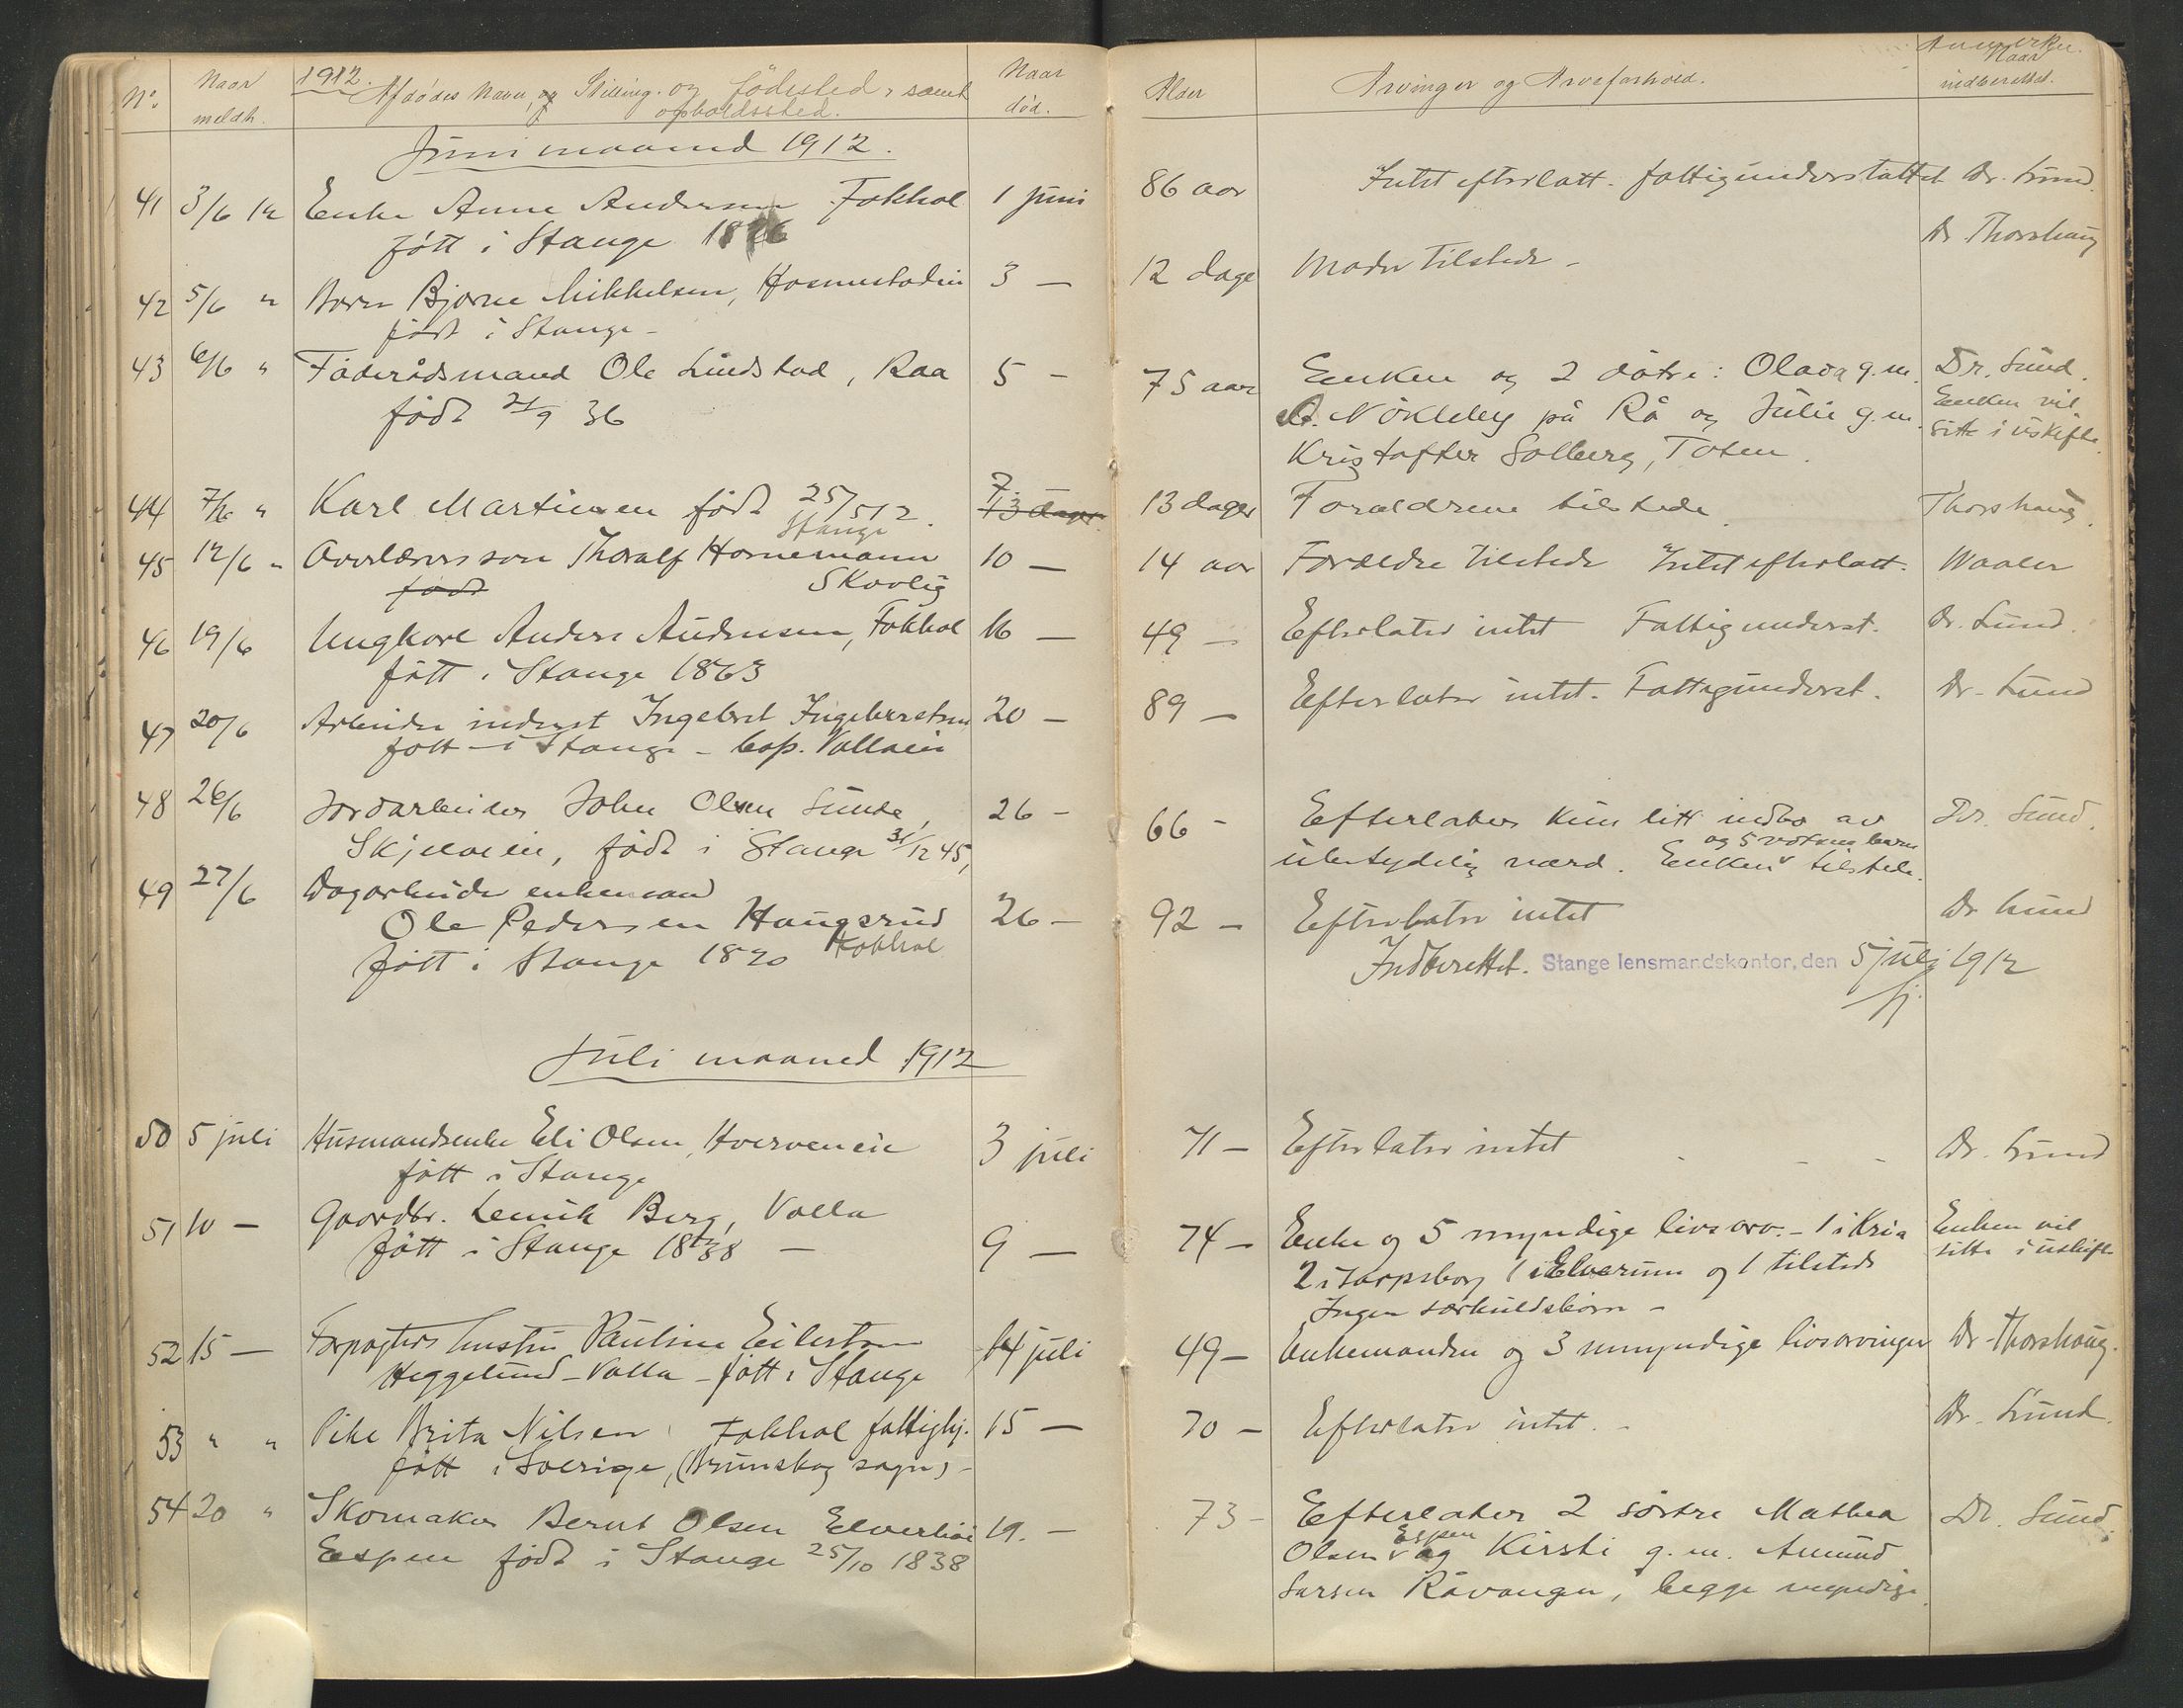 1912.
No. Naar meldt. Afdødes Navn, og Stilling. og fødested, samt opholdssted. Naar død.
Alder Arvinger og Arveforhold. Anmerkn. Naar indberettet.
Juni maaned 1912.
41 3/6 12 Enke Anne Andersen Fokhol 1 juni 86 aar Intet efterlatt. fattigunderstøttet Dr. Lund.
født i Stange 1826
42 5/6 " Barn Bjarne Mikkelsen, 3 — 12 dage Moder tilstede - Dr Thorshaug
født i Stange -
43 6/6 " Føderådsmand Ole Lindstad, Raa 5 - 75 aar Enken og 2 døtre: Olava g.m. Dr. Lund.
født 21/9 36 Nøkleby på Rå og Julie g.m. Enken vil
Kristoffer Solberg, Toten. sitte i uskifte.
44 7/6 " Karl Martinsen født 25/5 12. 7. 13 dager 13 dager Forældrene tilstede Thorshaug.
Stange
45 12/6 " Overlærers søn Thoralf Hornemann 10 — 14 aar Forældre tilstede Intet efterlatt. Waaler
født Skovlig
46 19/6 Ungkarl Anders Andersen, Fokhol 16 — 49 — Efterlater intet Fattigunderst. Dr. Lund.
født i Stange 1863
47 20/6 Arbeider inderst Ingebret Ingebretsen 20 — 89 — Efterlater intet. Fattigunderst. Dr. Lund
født i Stange - Vallaeie
48 26/6 Jordarbeider John Olsen Sunde, 26 - 66 - Efterlater kun litt indbo av Dr. Lund.
Skjelveie, født i Stange 31/12 45, og 5 voksne barn
ubetydelig værd. Enken tilstede.
49 27/6 Dagarbeider enkemand
Ole Pedersen Haugsrud 26 — 92 — Efterlater intet Dr Lund
født i Stange 1820 Fokhol
Indberettet. Stange lensmandskontor, den 5 juli 1912
Juli maaned 1912
50 5 juli Husmandsenke Eli Olsen, Hverveneie 3 juli 71 — Efterlater intet Dr. Lund
født i Stange
51 10 — Gaardbr. Lemik Berg, Valla 9 — 74 — Enke og 5 myndige livsarv. - 1 i Kr.ia Enken vil
født i Stange 1838 — 2 i Sarpsborg 1 i Elverum og 1 tilstede sitte i uskifte
Ingen særkuldsbørn -
52 15 — Forpagters hustru Pauline Eilertsen 14 juli 49 — Enkemanden og 3 umyndige livsarvinger Dr. Thorshaug.
Heggelund - Valla - født i Stange
53 " " Pike Brita Nilsen Fokhol fattighj. 15 — 70 — Efterlater intet. - Dr. Lund.
født i Sverige, (Brunskog sogn) -
54 20 " Skomaker Bernt Olsen Elverhøi 19. — 73 - Efterlater 2 søstre Mathea Dr. Lund.
Espen født i Stange 25/10 1838 Olsen Espen og Kirsti g.m. Amund
Larsen Råvangen, begge myndige